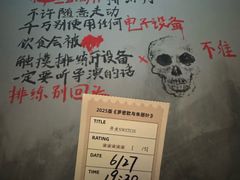 不许随意走动
千万别使用任何电子设备
饮食会被
不准
触摸排练厅设备
一定要听导演的话
排练别回头
2025版《罗密欧与朱丽叶》
RATING
[ /5]
DATE
6/27
19:30